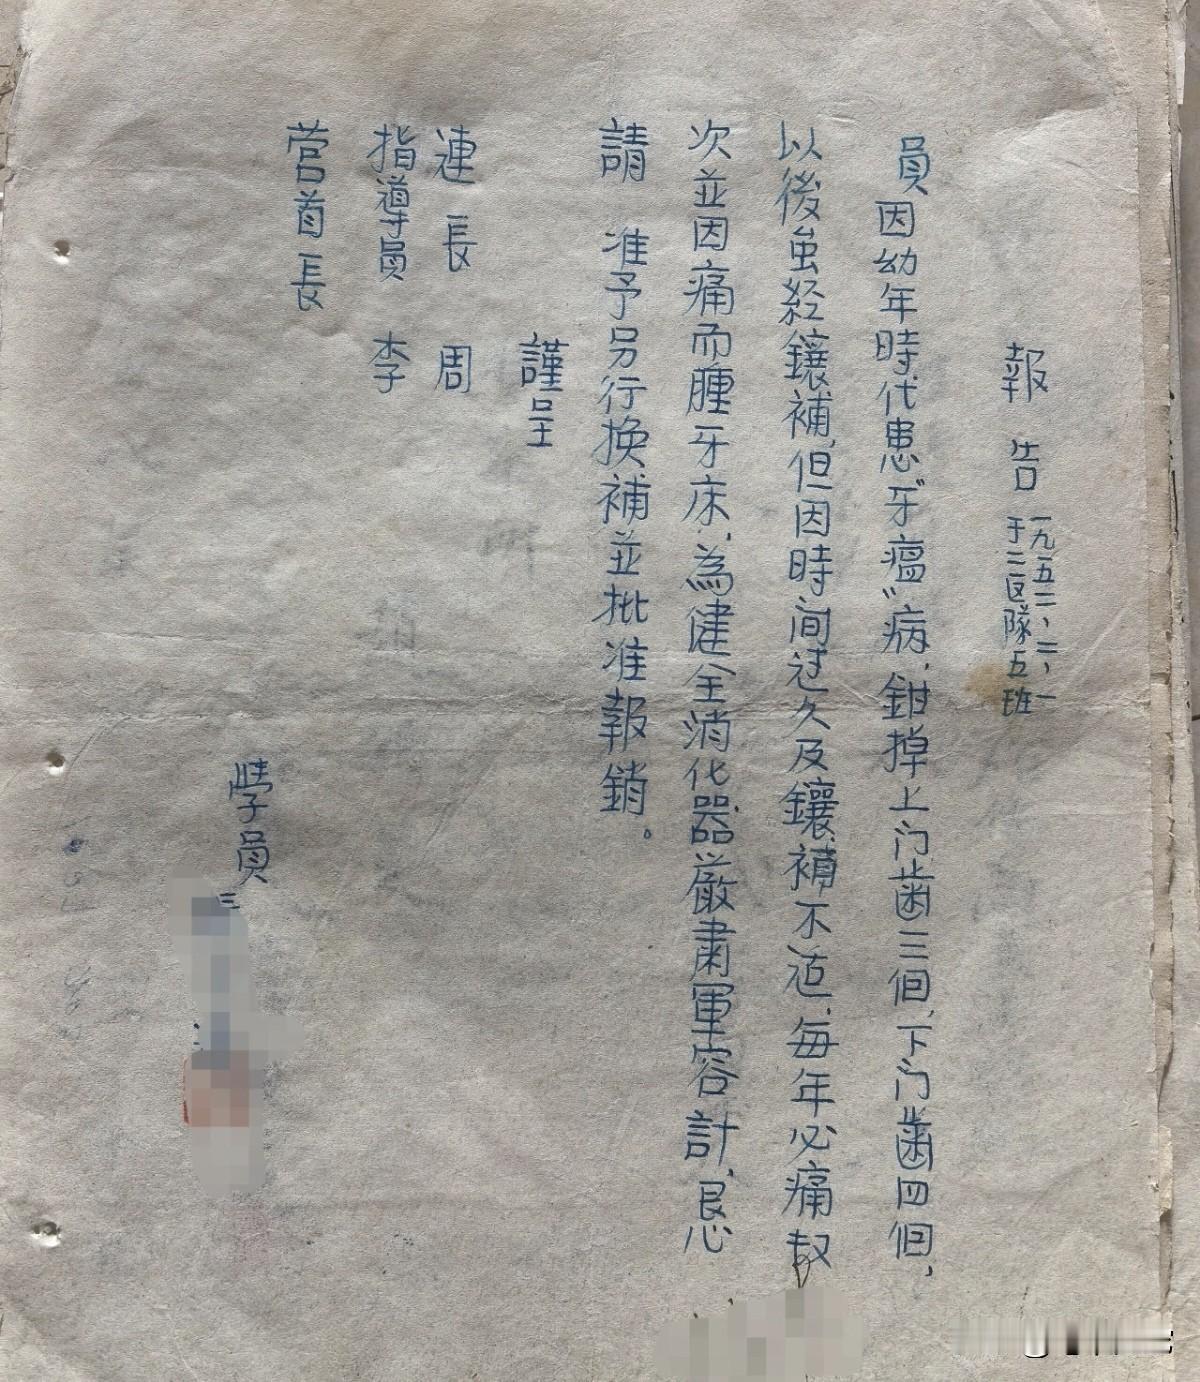 報告 一九五二、二、一
于二区隊五班
員因幼年時代患牙"瘟"病，鉗掉上门齒三個，下门齒四個，
以後虽経鑲補，但因時间过久及鑲補不适，每年必痛
次並因痛而腫牙床，為健全消化器以嚴肅軍容計，恳
請 准予另行换補並批准報銷。
謹呈
連長 周
指導員 李
营首長
學員